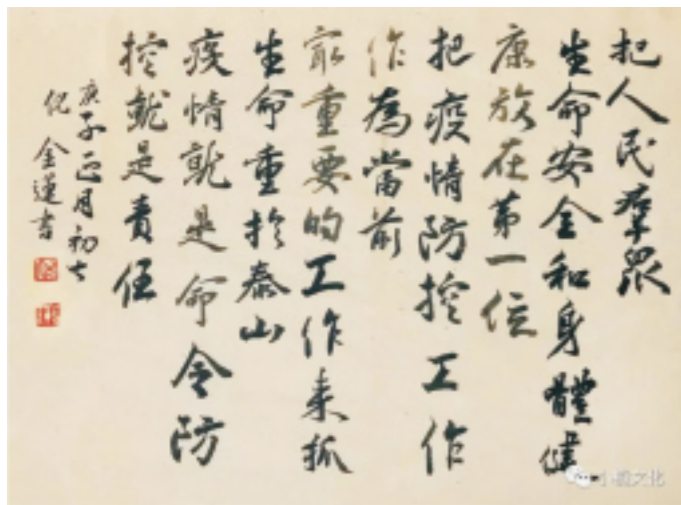 把人民群眾
生命安全和身體健
康放在第一位
把疫情防控工作
作為當前
最重要的工作来抓
生命重於泰山
疫情就是命令防
控就是責任
庚子正月初七
倪金蓮書
小楷文化